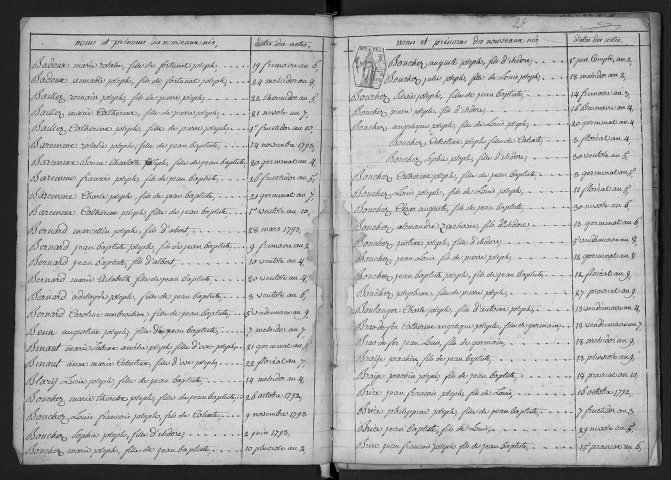 noms et prénoms des nouveaux nés, dates des actes,
Badoux marie rosalie, fille de fortunat joseph 19 frimaire an 6,
Badoux aimable joseph, fils de fortunat joseph 24 messidor an 8,
Baillez romain joseph, fils de pierre joseph 22 thermidor an 5,
Baillez marie Catherine, fille de pierre joseph, 21 nivose an 7,
Baillez Catherine joseph, fille de pierre joseph 1er fructidor an 10,
Baremme rosalie joseph, fille de jean baptiste, 14 novembre 1793,
Baremme Bonne Charlotte joseph, fille de jean baptiste 20 germinal an 4,
Baremme françois joseph, fils de jean baptiste, 26 fructidor an 5,
Baremme Charle joseph, fils de jean baptiste, 21 germinal an 7,
Baremme Catherine joseph, fille de jean baptiste, 1er ventose an 10,
Bernard marcellin joseph, fils d'albert, 25 mars 1793,
Bernard jean baptiste joseph, fils de jean baptiste, 9 frimaire an 2,
Bernard jean baptiste, fils d'albert, 10 ventose an 4,
Bernard marie Elisabeth, fille de jean baptiste, 20 ventose an 4,
Bernard adelayde joseph, fille de jean baptiste, 8 ventose an 6,
Bernard Caroline ambroisine, fille de jean baptiste, 5 vendémiaire an 9,
augustine joseph, fille de jean baptiste 7 messidor an 7,
Benaut marie Sabine amélie joseph, fille d'ive joseph, 21 germinal an 5,
Benaut anne marie Celestine, fille d'ive joseph, 22 floréal an 7,
Blary Livie joseph, fille de jean baptiste, 14 messidor an 4,
Bouchez marie Therese, fille de jean baptiste, 26 octobre 1792,
Bouchez Louis françois joseph, fils de Calixte, 9 novembre 1793
Bouchez Sophie joseph, fille d'isidore, 2 juin 1793,
Bouchez marie joseph, fille de jean baptiste, 10 pluviose an 2,
29
noms et prénoms des nouveaux nés dates des actes,
Bouchez auguste joseph, fils d'isidore, an 2,
Bouchez julie joseph, fille de Louis joseph, 18 messidor an 2,
Bouchez Elisée joseph, fils de jean baptiste, 14 frimaire an 3,
Bouchez pierre joseph, fils d'isidore, 16 brumaire an 4,
Bouchez angelique joseph, fille de jean baptiste, 20 germinal an 4,
Bouchez Celestine joseph, fille de Calixte, 8 floréal an 5,
Bouchez Sophie joseph, fille d'isidore, 30 ventose an 5,
Bouchez Catherine joseph, fille de jean baptiste, 8 germinal an 6,
Bouchez Louis joseph, fils de Louis joseph, 11 floréal an 6,
Bouchez César auguste, fils de jean baptiste, 30 nivose an 6,
Bouchez alexandre Zacharie, fils d'isidore, 18 germinal an 6,
Bouchez justine joseph, fille d'isidore, 5 vendémiaire an 8,
Bouchez jean Louis, fils de pierre joseph, 12 germinal an 8,
Bouchez jean baptiste joseph, fils de jean baptiste, 12 floréal an 9,
Bouchez josephine, fille de pierre joseph, 27 prairial an 9,
Boulanger Charle joseph, fils d'antoine joseph, 13 vendémiaire an 4,
Bras-de-fer Catherine angelique joseph, fille de germain, 13 vendémiaire an 7,
Bras-de-fer jean Louis, fils de germain, 18 messidor an 9,
Braiye joachim, fils de jean baptiste, 13 pluviose an 9,
Braiye joachim joseph, fils de jean baptiste, 14 prairial an 10,
Brice jean françois joseph, fils de Louis, 16 octobre 1792,
Brice philippine joseph, fille de jean baptiste, 7 fructidor an 3,
Brice jean baptiste, fils de Louis, 29 nivose an 5,
Brice jean françois joseph fils de jean baptiste, 15 prairial an 6,